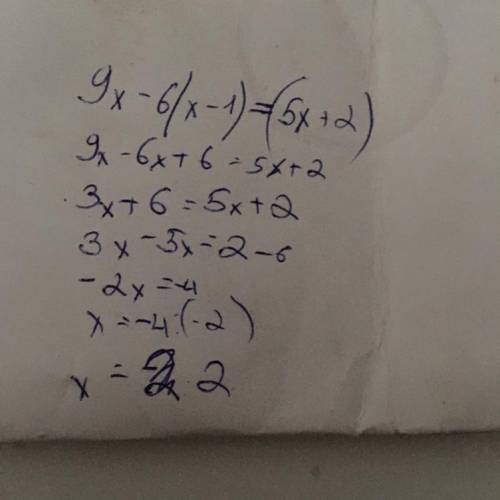 9x - 6(x - 1) = (5x + 2)
9x - 6x + 6 = 5x + 2
3x + 6 = 5x + 2
3x - 5x = 2 - 6
-2x = -4
x = -4:(-2)
x = 2